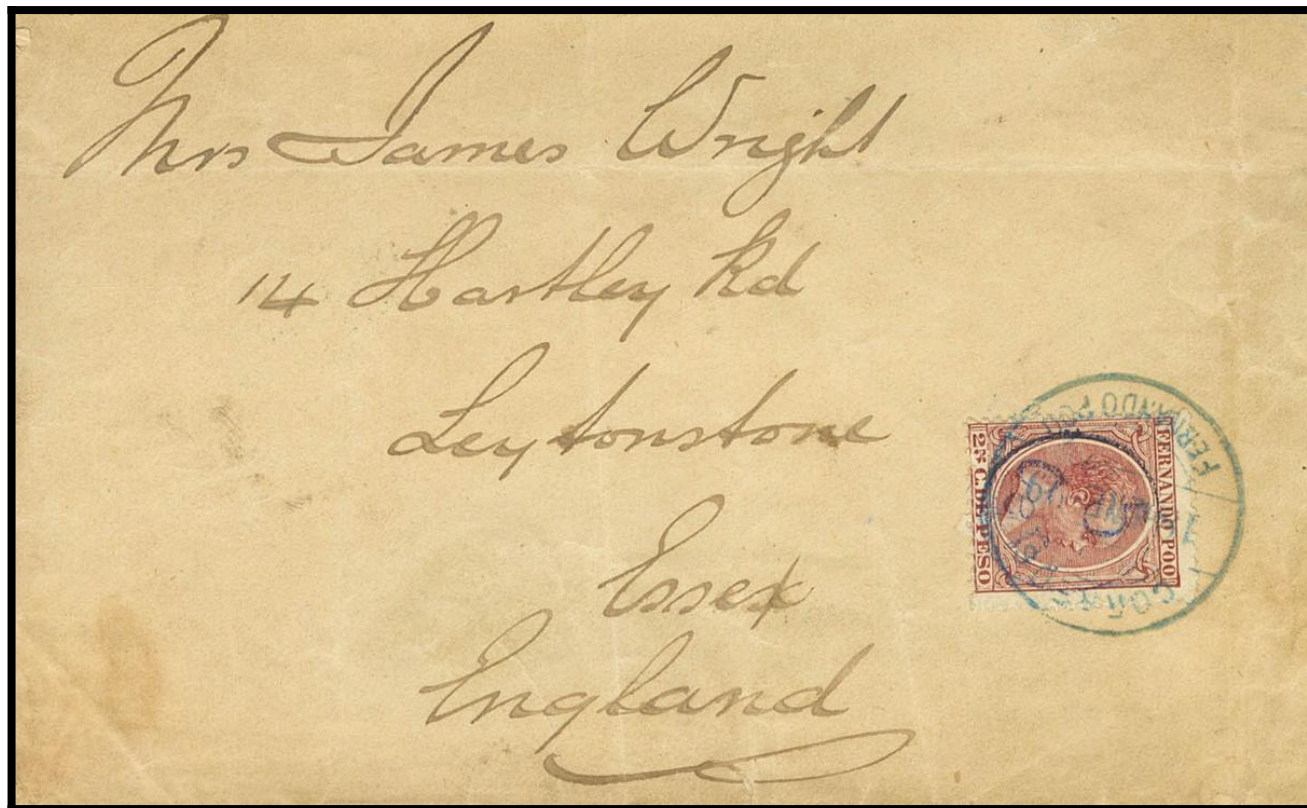 Mrs James Wright
14 Hartley Rd
Leytonstone
Essex
England
FERNANDO POO
25 C. DE PESO
FERNANDO POO